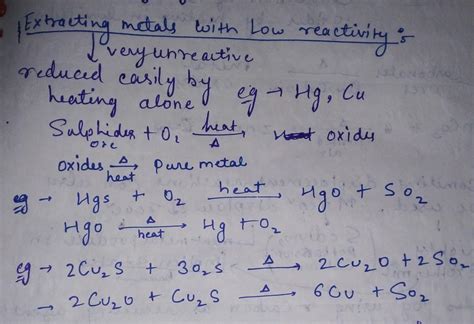 Extracting metals with Low reactivity :
↓ very unreactive
reduced easily by
heating alone eg → Hg, Cu
Sulphides + O₂ heat → Δ oxides
ore
oxides Δ → heat Pure metal
eg → HgS + O₂ heat → HgO + SO₂
HgO Δ → heat Hg + O₂
eg → 2Cu₂S + 3O₂S Δ → 2Cu₂O + 2SO₂
→ 2Cu₂O + Cu₂S Δ → 6Cu + SO₂